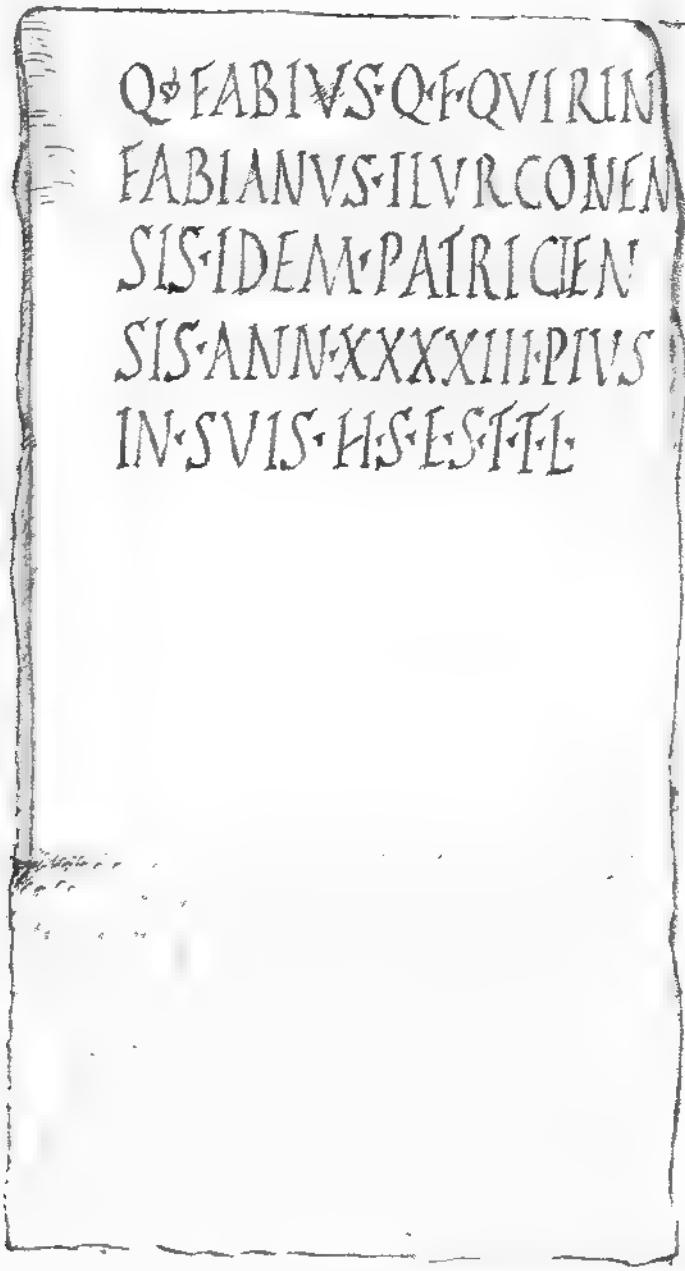 Q❦FABIVS·Q·F·QVIRIN
FABIANVS·ILVRCONEN
SIS·IDEM·PATRICIEN
SIS·ANN·XXXXIII·PIVS
IN·SVIS·H·S·E·S·T·T·L·